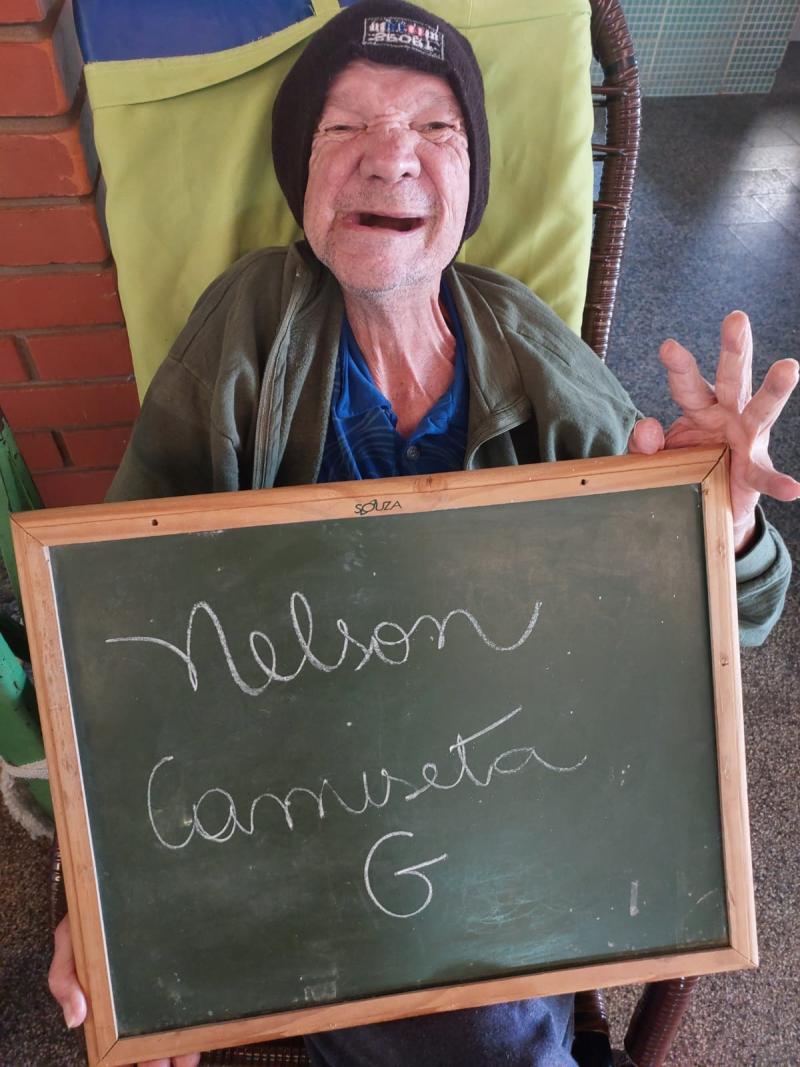 SOUZA
Nelson
Camiseta
G